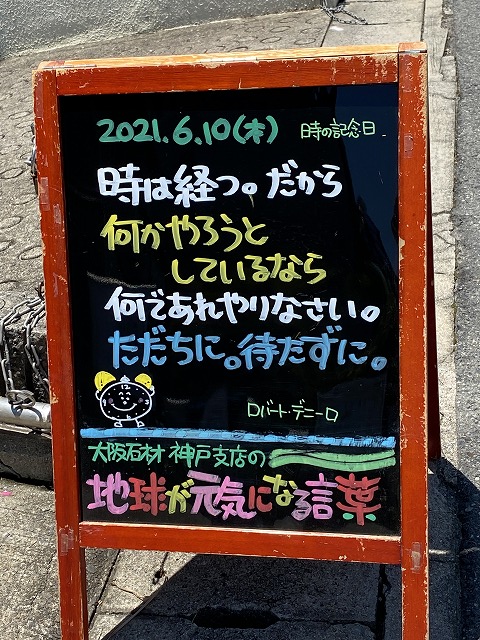 2021.6.10(木) 時の記念日
時は経つ。だから
何かやろうと
しているなら
何であれやりなさい。
ただちに。待たずに。
ロバート・デニーロ
大阪石材 神戸支店の
地球が元気になる言葉